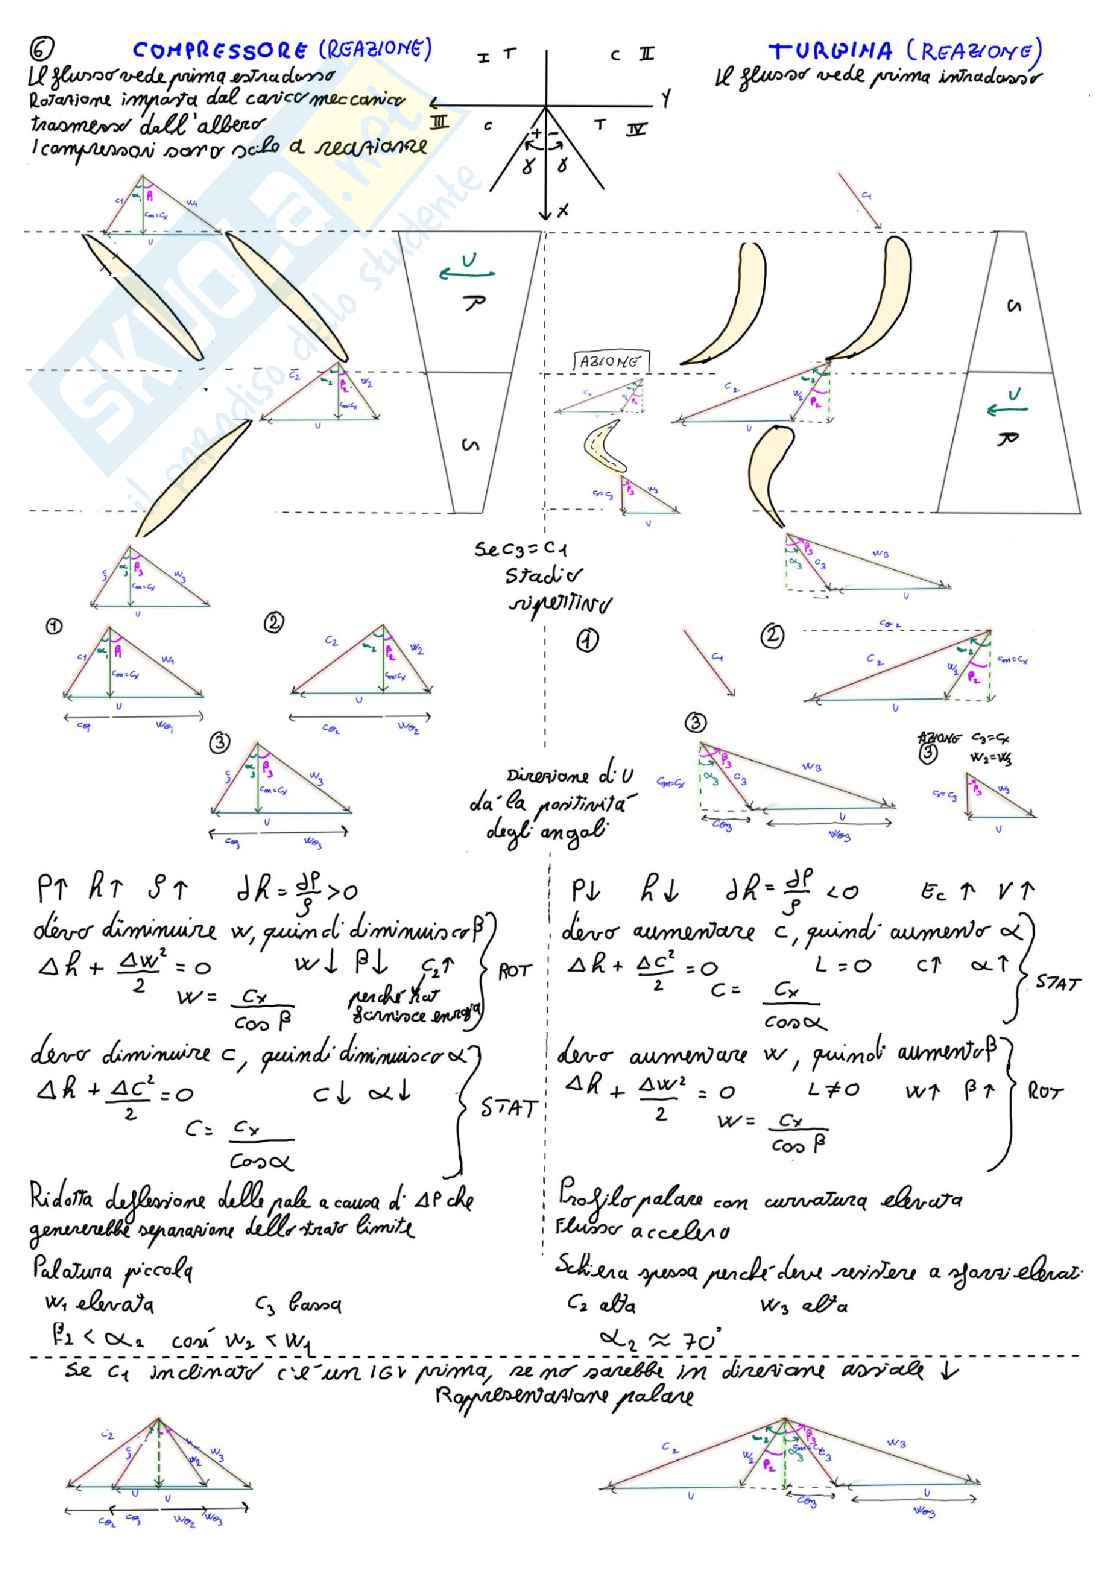 6 COMPRESSORE (REAZIONE)
Il flusso vede prima estradosso
Rotazione imposta dal carico meccanico
trasmesso dall'albero
I compressori sono solo a reazione
I T C II
Y
III C T IV
+ -
γ γ
X
TURBINA (REAZIONE)
Il flusso vede prima intradosso
SKUOLA.net
il paradiso dello studente
α1 β1
c1 w1
cm=cx
U
U
R
c1
S
AZIONE
c2 α2 β2 w2
cm=cx
U
S
c2 α2
w2 β2
U
U
R
cx=c3 β3 w3
U
Se c3=c1
Stadio
ripetitivo
α3 β3
c3 w3
cm=cx
U
β3 α3 c3 w3
U
1
c1 α1 β1 w1
cm=cx
U
cθ1 wθ1
2
c2 α2 β2 w2
cm=cx
U
cθ2 wθ2
1
c1
2
cθ2
c2 α2 w2 β2 cm=cx
U
3
c3 α3 β3 w3
cm=cx
U
cθ3 wθ3
Direzione di U
dà la positività
degli angoli
3
cm=cx α3 β3 c3 w3
U
cθ3 wθ3
AZIONE c3=cx
3 w2=w3
cx=c3 β3 w3
U
P↑ h↑ ρ↑ dh = dP/ρ >0
devo diminuire w, quindi diminuisco β
Δh + Δw²/2 = 0 w↓ β↓ c2↑
w = cx/cos β
perché rot
fornisce energia
ROT
devo diminuire c, quindi diminuisco α
Δh + Δc²/2 = 0 c↓ α↓
c = cx/cos α
STAT
Ridotta deflessione delle pale a causa di ΔP che
genererebbe separazione dello strato limite
Palatura piccola
w1 elevata c3 bassa
β2 < α2 così w2 < w1
P↓ h↓ dh = dP/ρ <0 Ec↑ V↑
devo aumentare c, quindi aumento α
Δh + Δc²/2 = 0 L=0 c↑ α↑
c = cx/cos α
STAT
devo aumentare w, quindi aumento β
Δh + Δw²/2 = 0 L≠0 w↑ β↑
w = cx/cos β
ROT
Profilo palare con curvatura elevata
Flusso accelera
Schiera spessa perché deve resistere a sforzi elevati
c2 alta w3 alta
α2 ≈ 70°
Se c1 inclinato c'è un IGV prima, se no sarebbe in direzione assiale ↓
Rappresentazione palare
c2 c3 w2 w3
U
U
cθ2 cθ3 wθ2 wθ3
c2 α2 w2 β2 α3 β3 c3 w3
U U
cθ3 wθ3